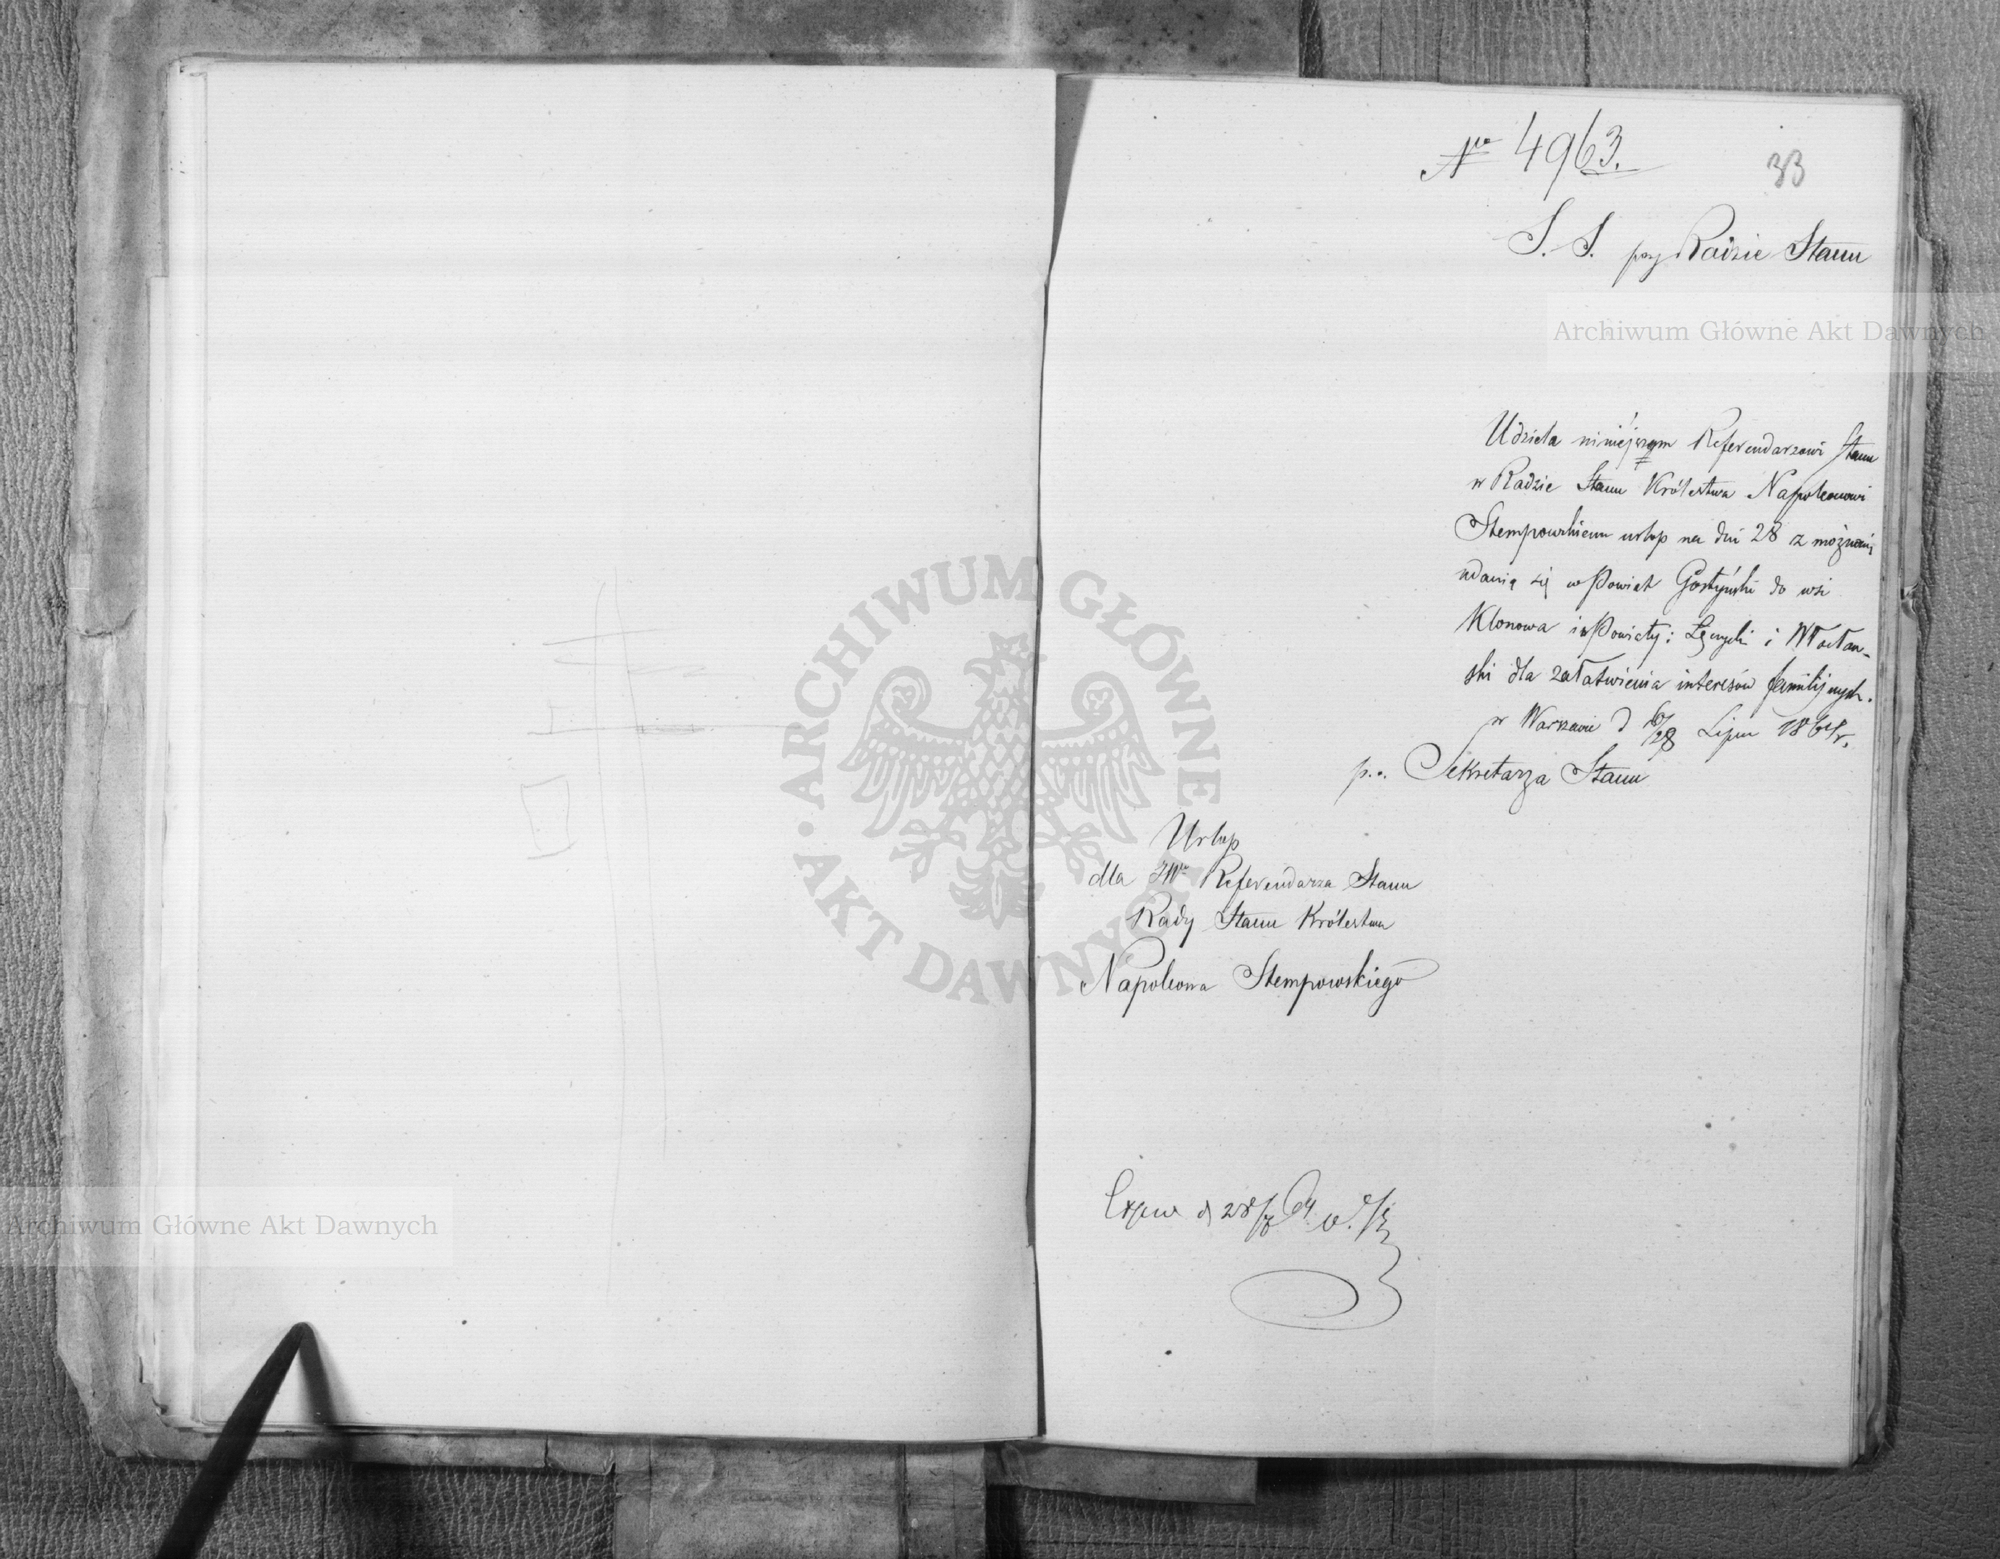 Nro 4963.
33
S. S. przy Radzie Stanu
Archiwum Główne Akt Dawnych
Udziela niniejszym Referendarzowi Stanu
w Radzie Stanu Królestwa Napoleonowi
Stempowskiemu urlop na dni 28 z możnością
udania się w Powiat Gostyński do wsi
Klonowa i w Powiaty: Łęczycki i Włocław-
ski dla załatwienia interesów familijnych.
w Warszawie d 16/28 Lipca 1864 r.
p.o. Sekretarza Stanu
Urlop
dla JWgo Referendarza Stanu
Rady Stanu Królestwa
Napoleona Stempowskiego
d 28/7 64
Archiwum Główne Akt Dawnych
ARCHIWUM GŁÓWNE · AKT DAWNYCH ·